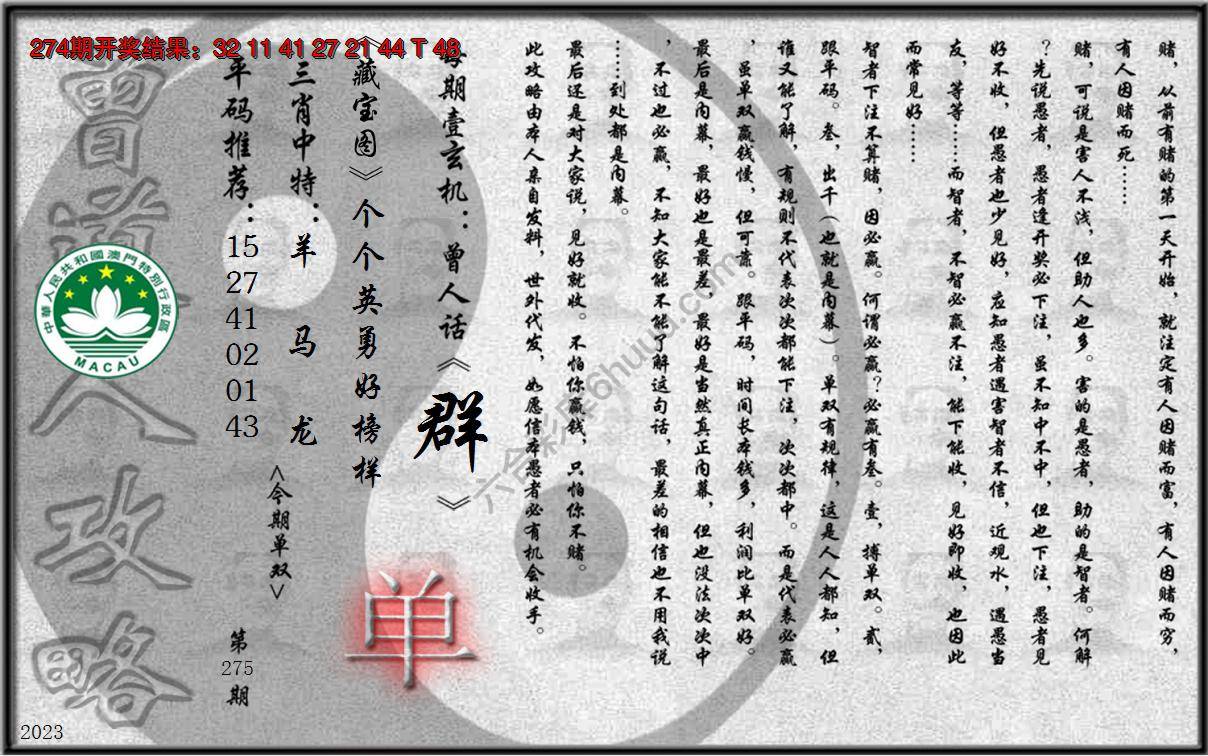 274期开奖结果：32 11 41 27 21 44 T 48
赌，从前有赌的第一天开始，就注定有人因赌而富，有人因赌而穷，
有人因赌而死……
赌，可说是害人不浅，但助人也多。害的是愚者，助的是智者。何解
？先说愚者，愚者逢开奖必下注，虽不知中不中，但也下注，愚者见
好不收，但愚者也少见好，应知愚者遇害智者不信，近观水，遇愚当
友，等等……而智者，不智必赢不注，能下能收，见好即收，也因此
而常见好……
智者下注不算赌，因必赢。何谓必赢？必赢有叁。壹，搏单双。贰，
跟平码。叁，出千（也就是内幕）。单双有规律，这是人人都知，但
谁又能了解，有规则不代表次次都能下注，次次都中。而是代表必赢
，虽单双赢钱慢，但可靠。跟平码，时间长本钱多，利润比单双好。
最后是内幕，最好也是最差，最好是当然真正内幕，但也没法次次中
，不过也必赢，不知大家能不能了解这句话，最差的相信也不用我说
……到处都是内幕。
最后还是对大家说，见好就收。不怕你赢钱，只怕你不赌。
此攻略由本人亲自发料，世外代发，如愿信本愚者必有机会收手。
每期壹玄机：曾人话《群》
《藏宝图》个个英勇好榜样
三肖中特：羊 马 龙
<今期单双>
单
平码推荐：15 27 41 02 01 43
第275期
曾道人攻略
中華人民共和國澳門特別行政區
MACAU
六合彩库6huuu.com
2023